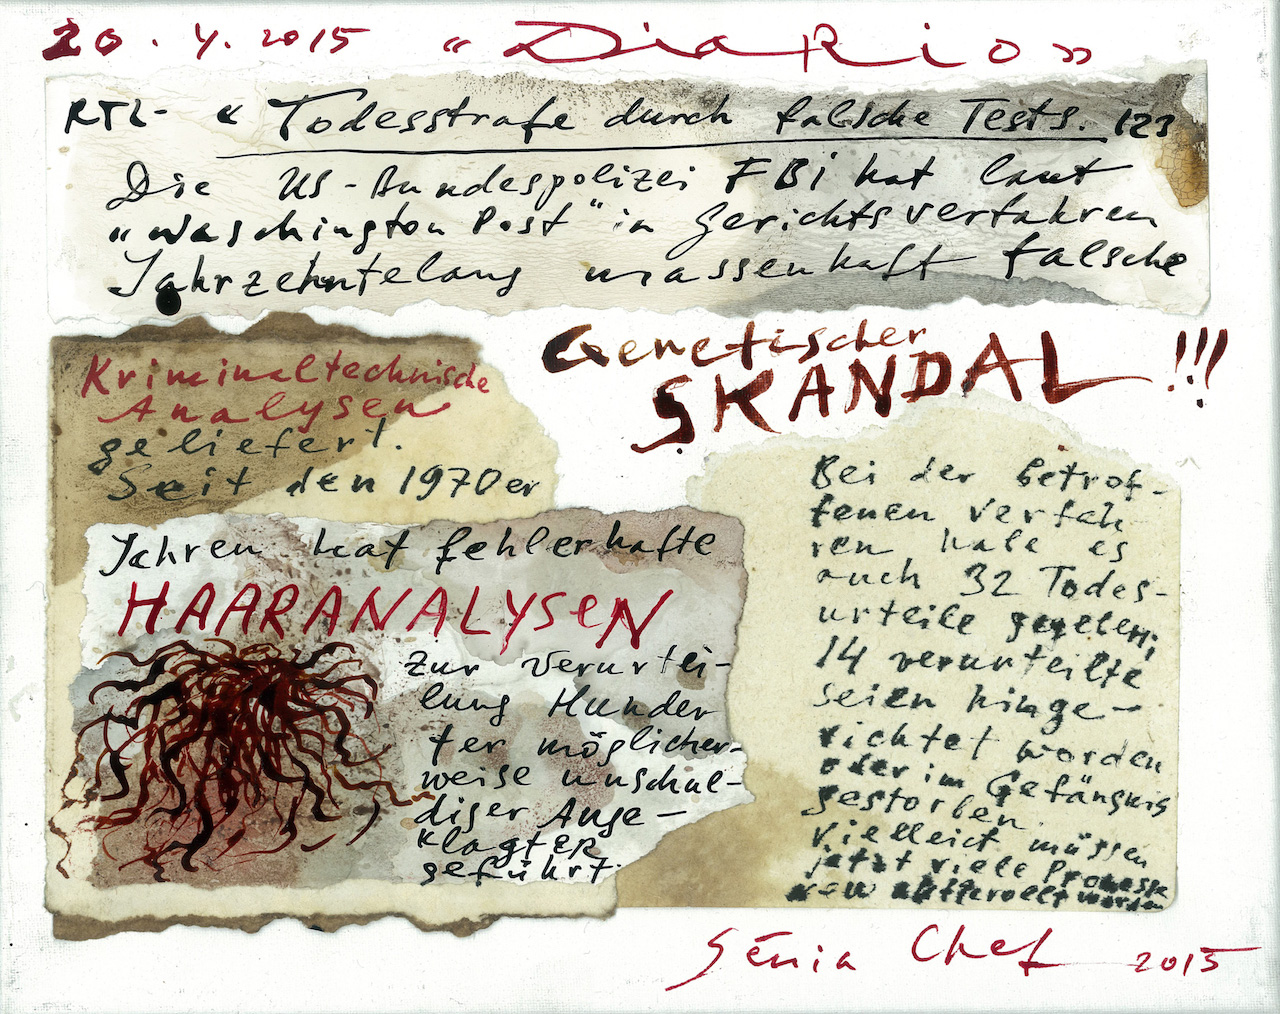 20.4.2015 "Diario"
RTL- "Todesstrafe durch falsche Tests. 123
Die US-Bundespolizei FBi hat laut
"Waschington Post" in Gerichtsverfahren
Jahrzehntelang massenhaft falsche
Genetischer
SKANDAL !!!
Kriminaltechnische
Analysen
geliefert.
Seit den 1970er
Jahren hat fehlerhafte
HAARANALYSEN
zur Verurtei-
lung Hunder
ter möglicher-
weise unschul-
diger Ange-
klagter
geführt.
Bei der betrof-
fenen Verfah
ren habe es
auch 32 Todes-
urteile gegeben;
14 verurteilte
seien hinge-
richtet worden
oder im Gefängnis
gestorben.
Vielleict müssen
jetzt viele Prozesse
neu aufgerollt werden
Sénia Chef 2015